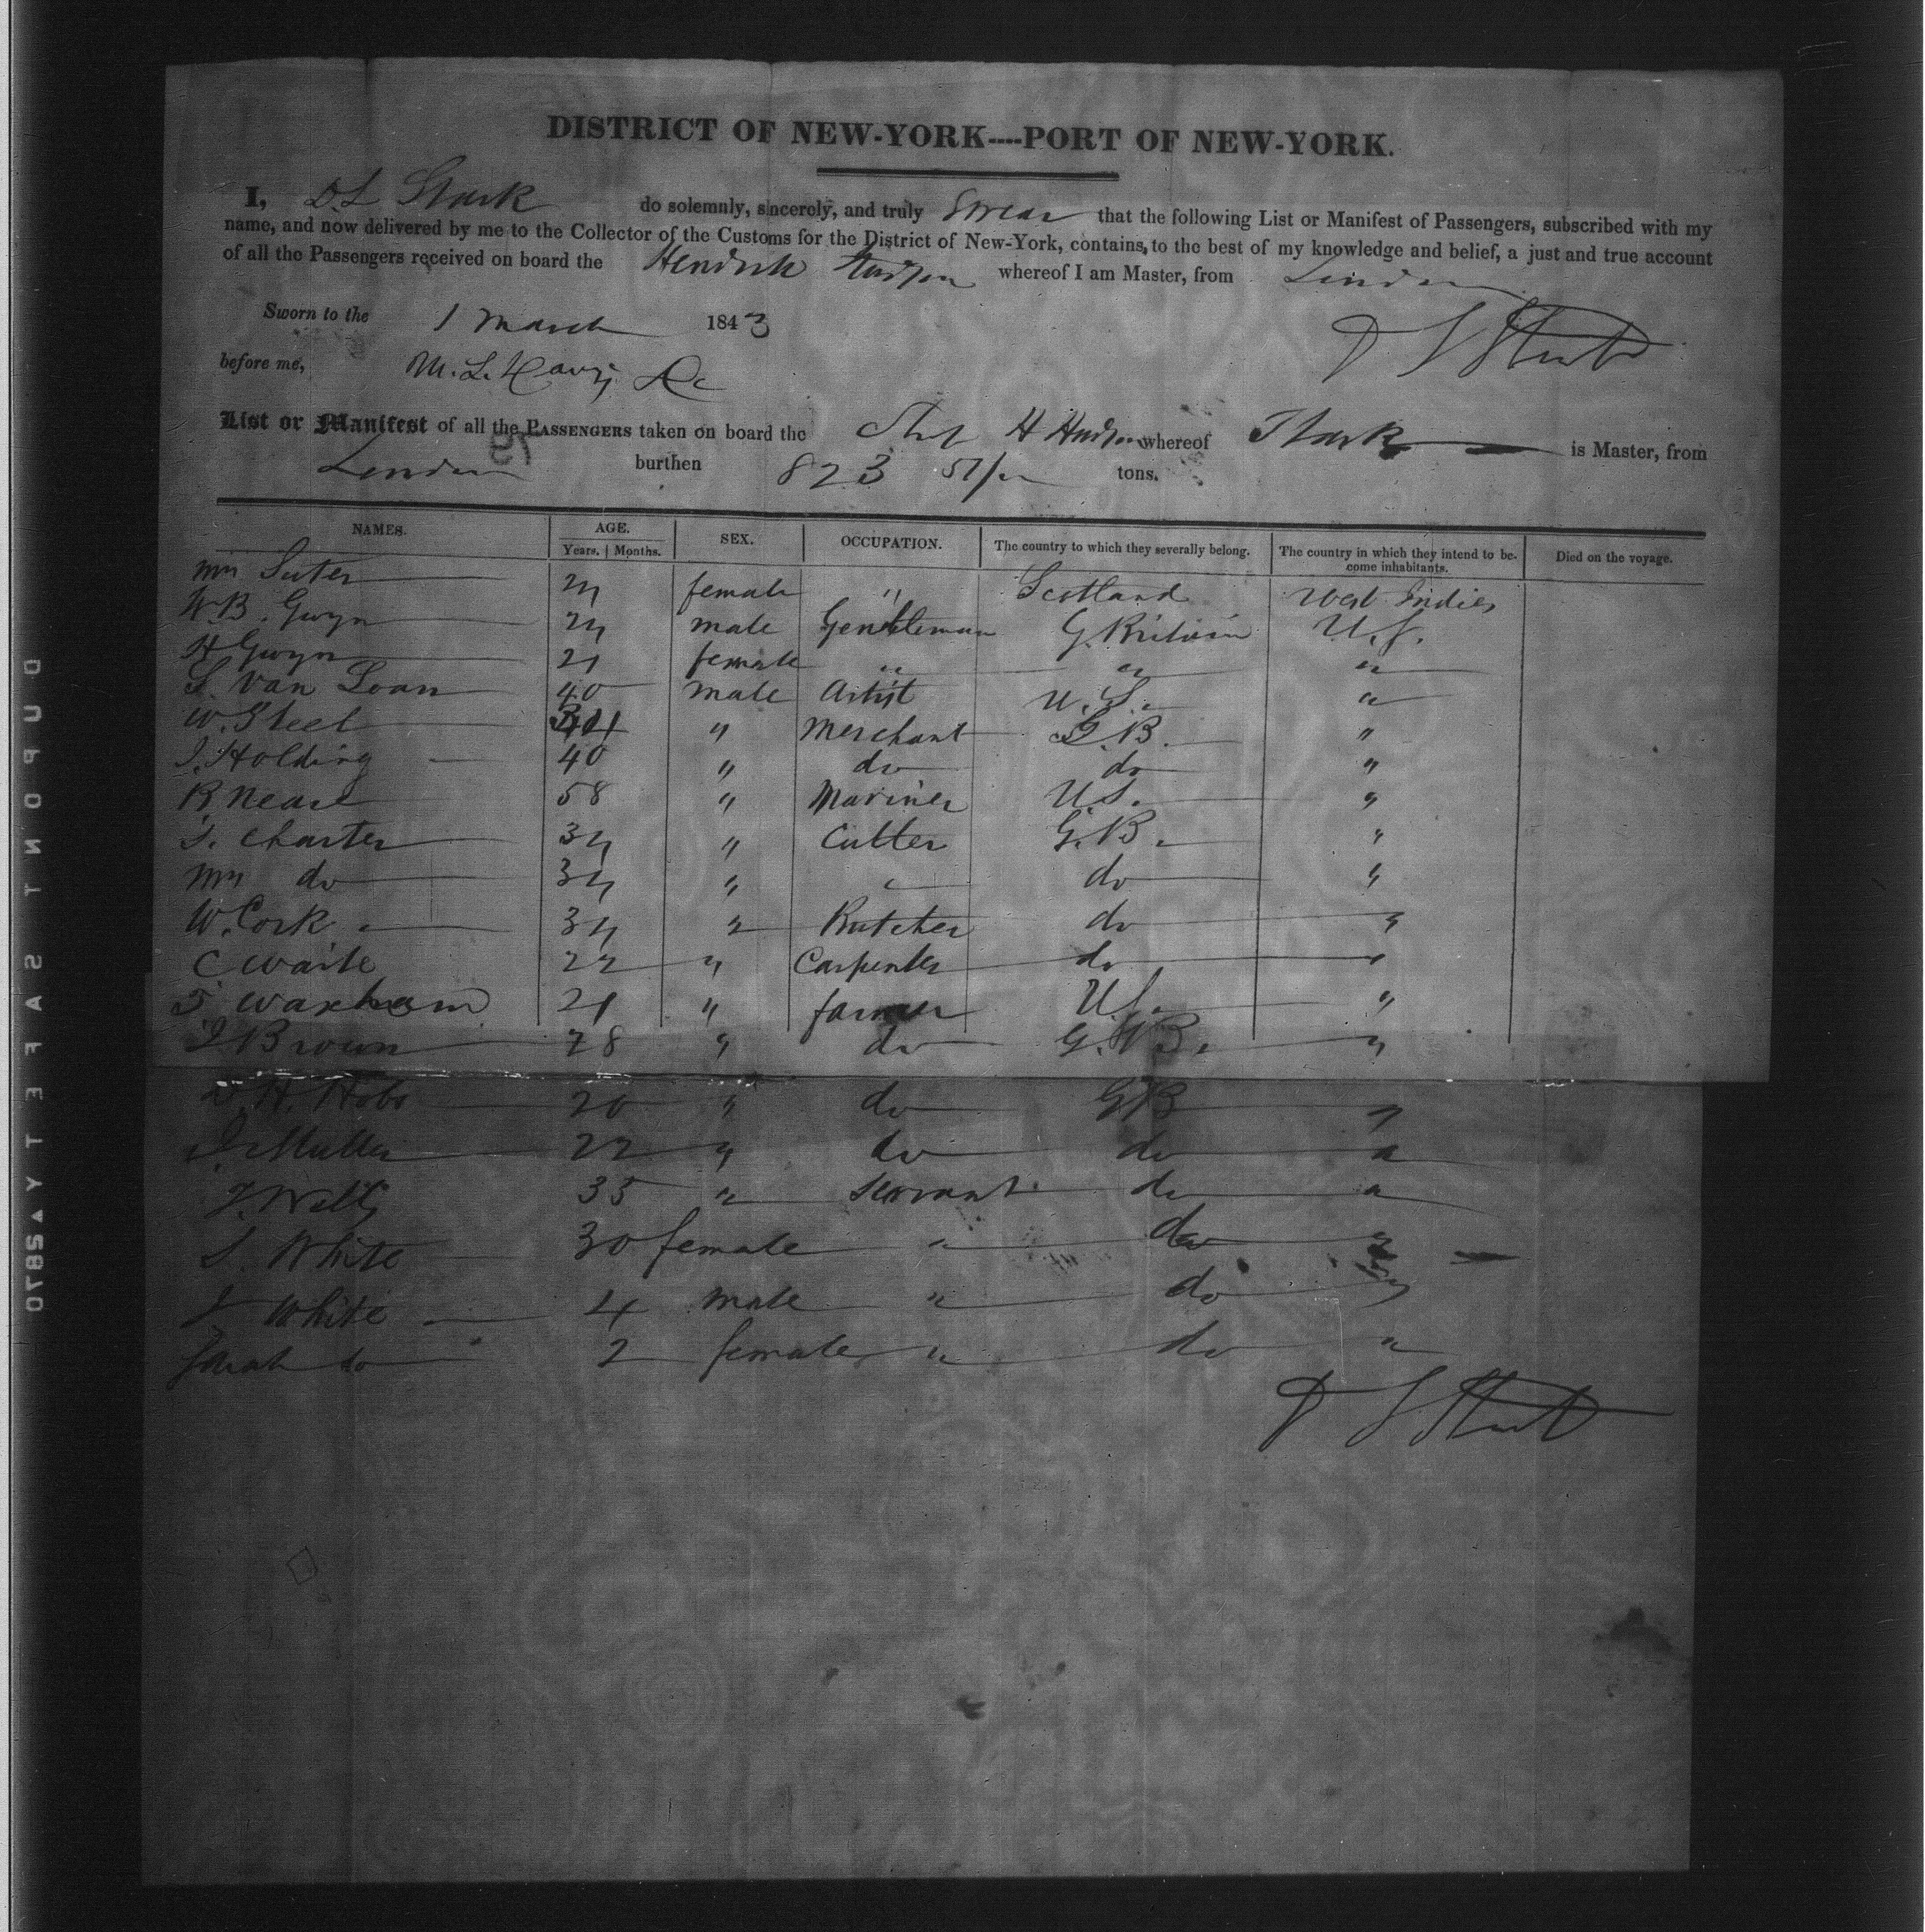 DISTRICT OF NEW-YORK----PORT OF NEW-YORK.
I, D L Stark do solemnly, sincerely, and truly Swear that the following List or Manifest of Passengers, subscribed with my
name, and now delivered by me to the Collector of the Customs for the District of New-York, contains, to the best of my knowledge and belief, a just and true account
of all the Passengers received on board the Hendrik Hudson whereof I am Master, from London
Sworn to the 1 March 1843
before me,
List or Manifest of all the PASSENGERS taken on board the Ship H Hudson whereof Stark is Master, from
London burthen 823 tons.
NAMES. AGE. SEX. OCCUPATION. The country to which they severally belong. The country in which they intend to be- Died on the voyage.
Years. Months. come inhabitants.
Mrs Suter female " Scotland West Indies
W B. Gwyn male Gentleman G Britain U.S.
H Gwyn 21 female " " "
S. Van Loan 40 male Artist U.S. "
W. Steel " Merchant G.B. "
J. Holding 40 " do do "
R Nease 58 " Mariner U.S. "
S. Charter 34 " Cutler G.B. "
Mrs do 34 " do "
W. Cork 34 " Butcher do "
C Waite 22 " Carpenter do "
T Waxham 21 " farmer U.S. "
J Brown 28 " do G.B. "
W. H. Hobs 20 " do GB "
J. Muller 22 " do do "
J. Wells 35 " Servant do "
S. White 30 female " do "
J White 4 male " do "
Sarah do 2 female " do "
D L Stark
DUPONT SAFETY